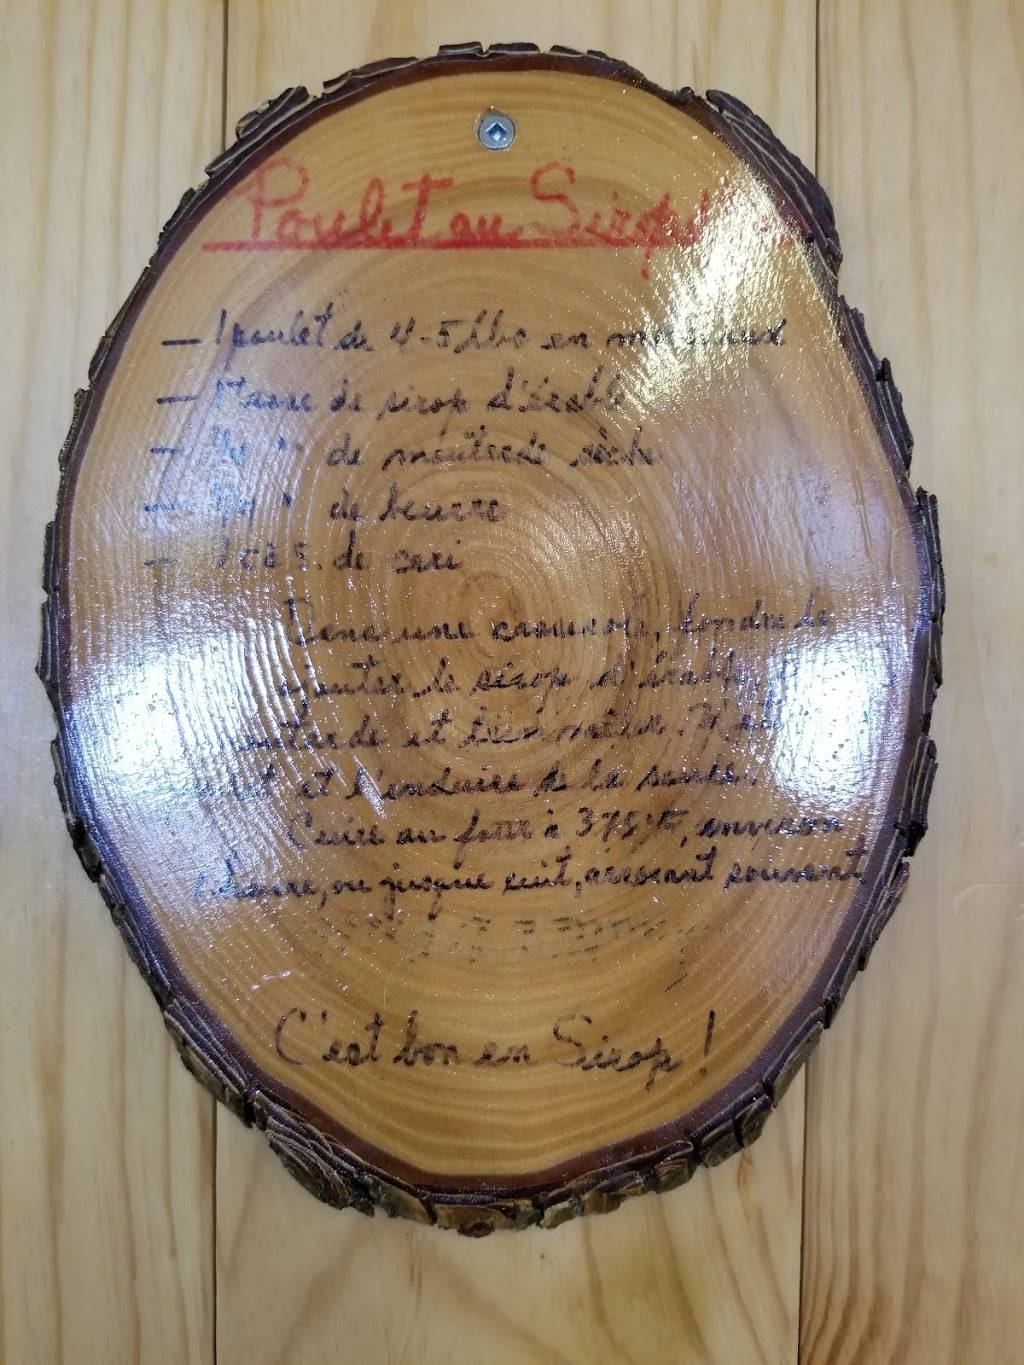 Poulet au Sirop
— 1 poulet de 4-5 lbs en morceaux
— 1 tasse de sirop d'érable
— 1/4 " de moutarde sèche
— 1/4 " de beurre
— 1 c à s. de cari
Dans une casserole, fondre le
ajouter le sirop d'érable,
moutarde et bien mêler.
et l'enduire de la sauce.
Cuire au four à 375°F, environ
1 heure, ou jusque cuit, arrosant souvent
C'est bon en Sirop!